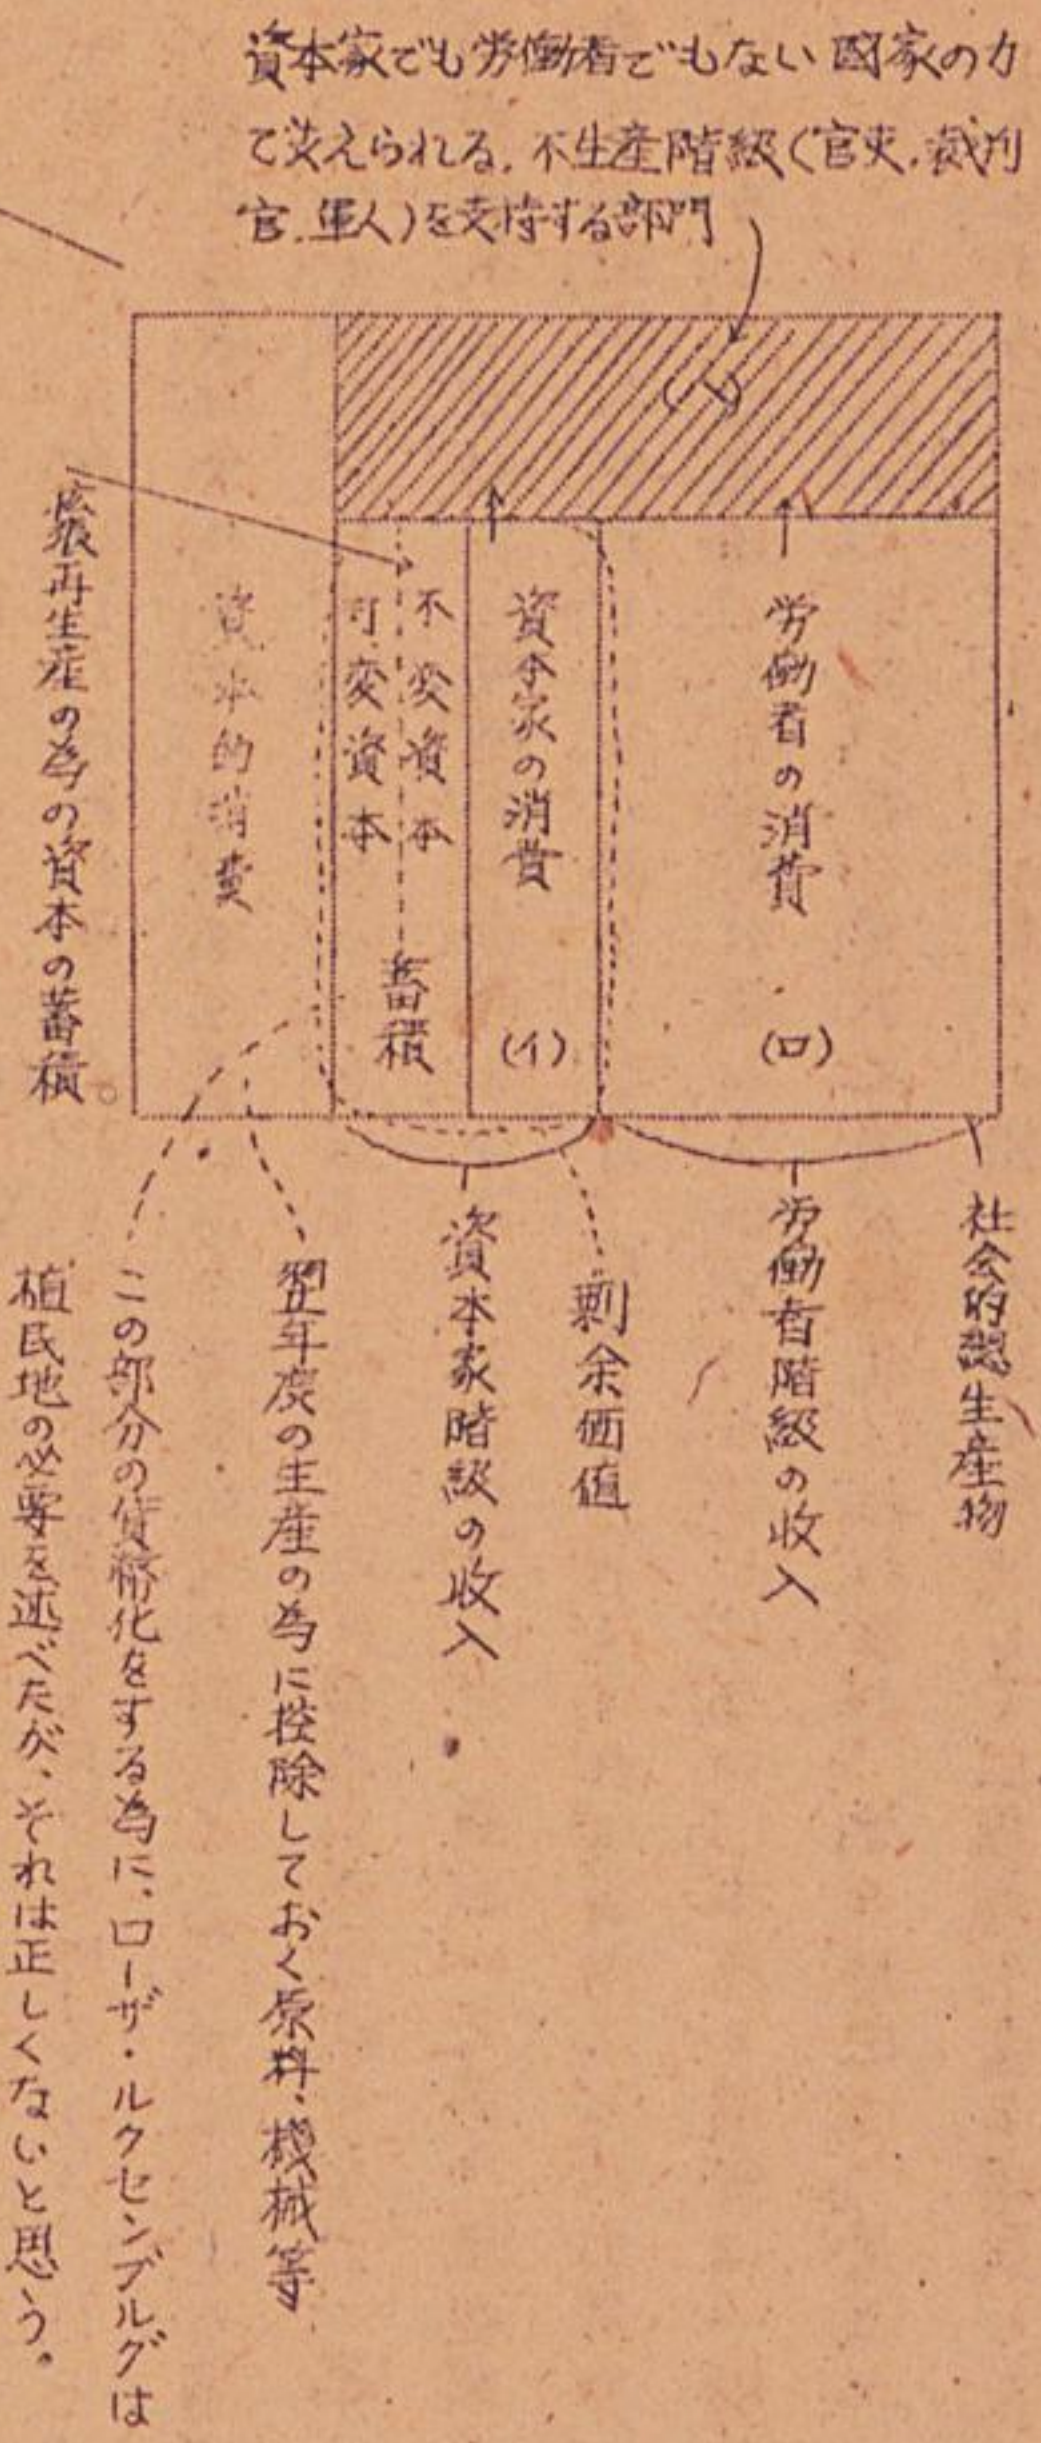 資本家でも労働者でもない国家の力
で支えられる、不生産階級(官吏、裁判
官、軍人)を支持する部門
(ハ)
労働者の消費 (ロ)
資本家の消費 (イ)
不変資本
可変資本
蓄積
資本的消費
拡張再生産の為の資本の蓄積。
社会的總生産物
労働者階級の收入
剰余価値
資本家階級の收入
翌年度の生産の為に控除しておく原料、機械等
この部分の貨幣化をする為に、ローザ・ルクセンブルグは
植民地の必要を述べたが、それは正しくないと思う。